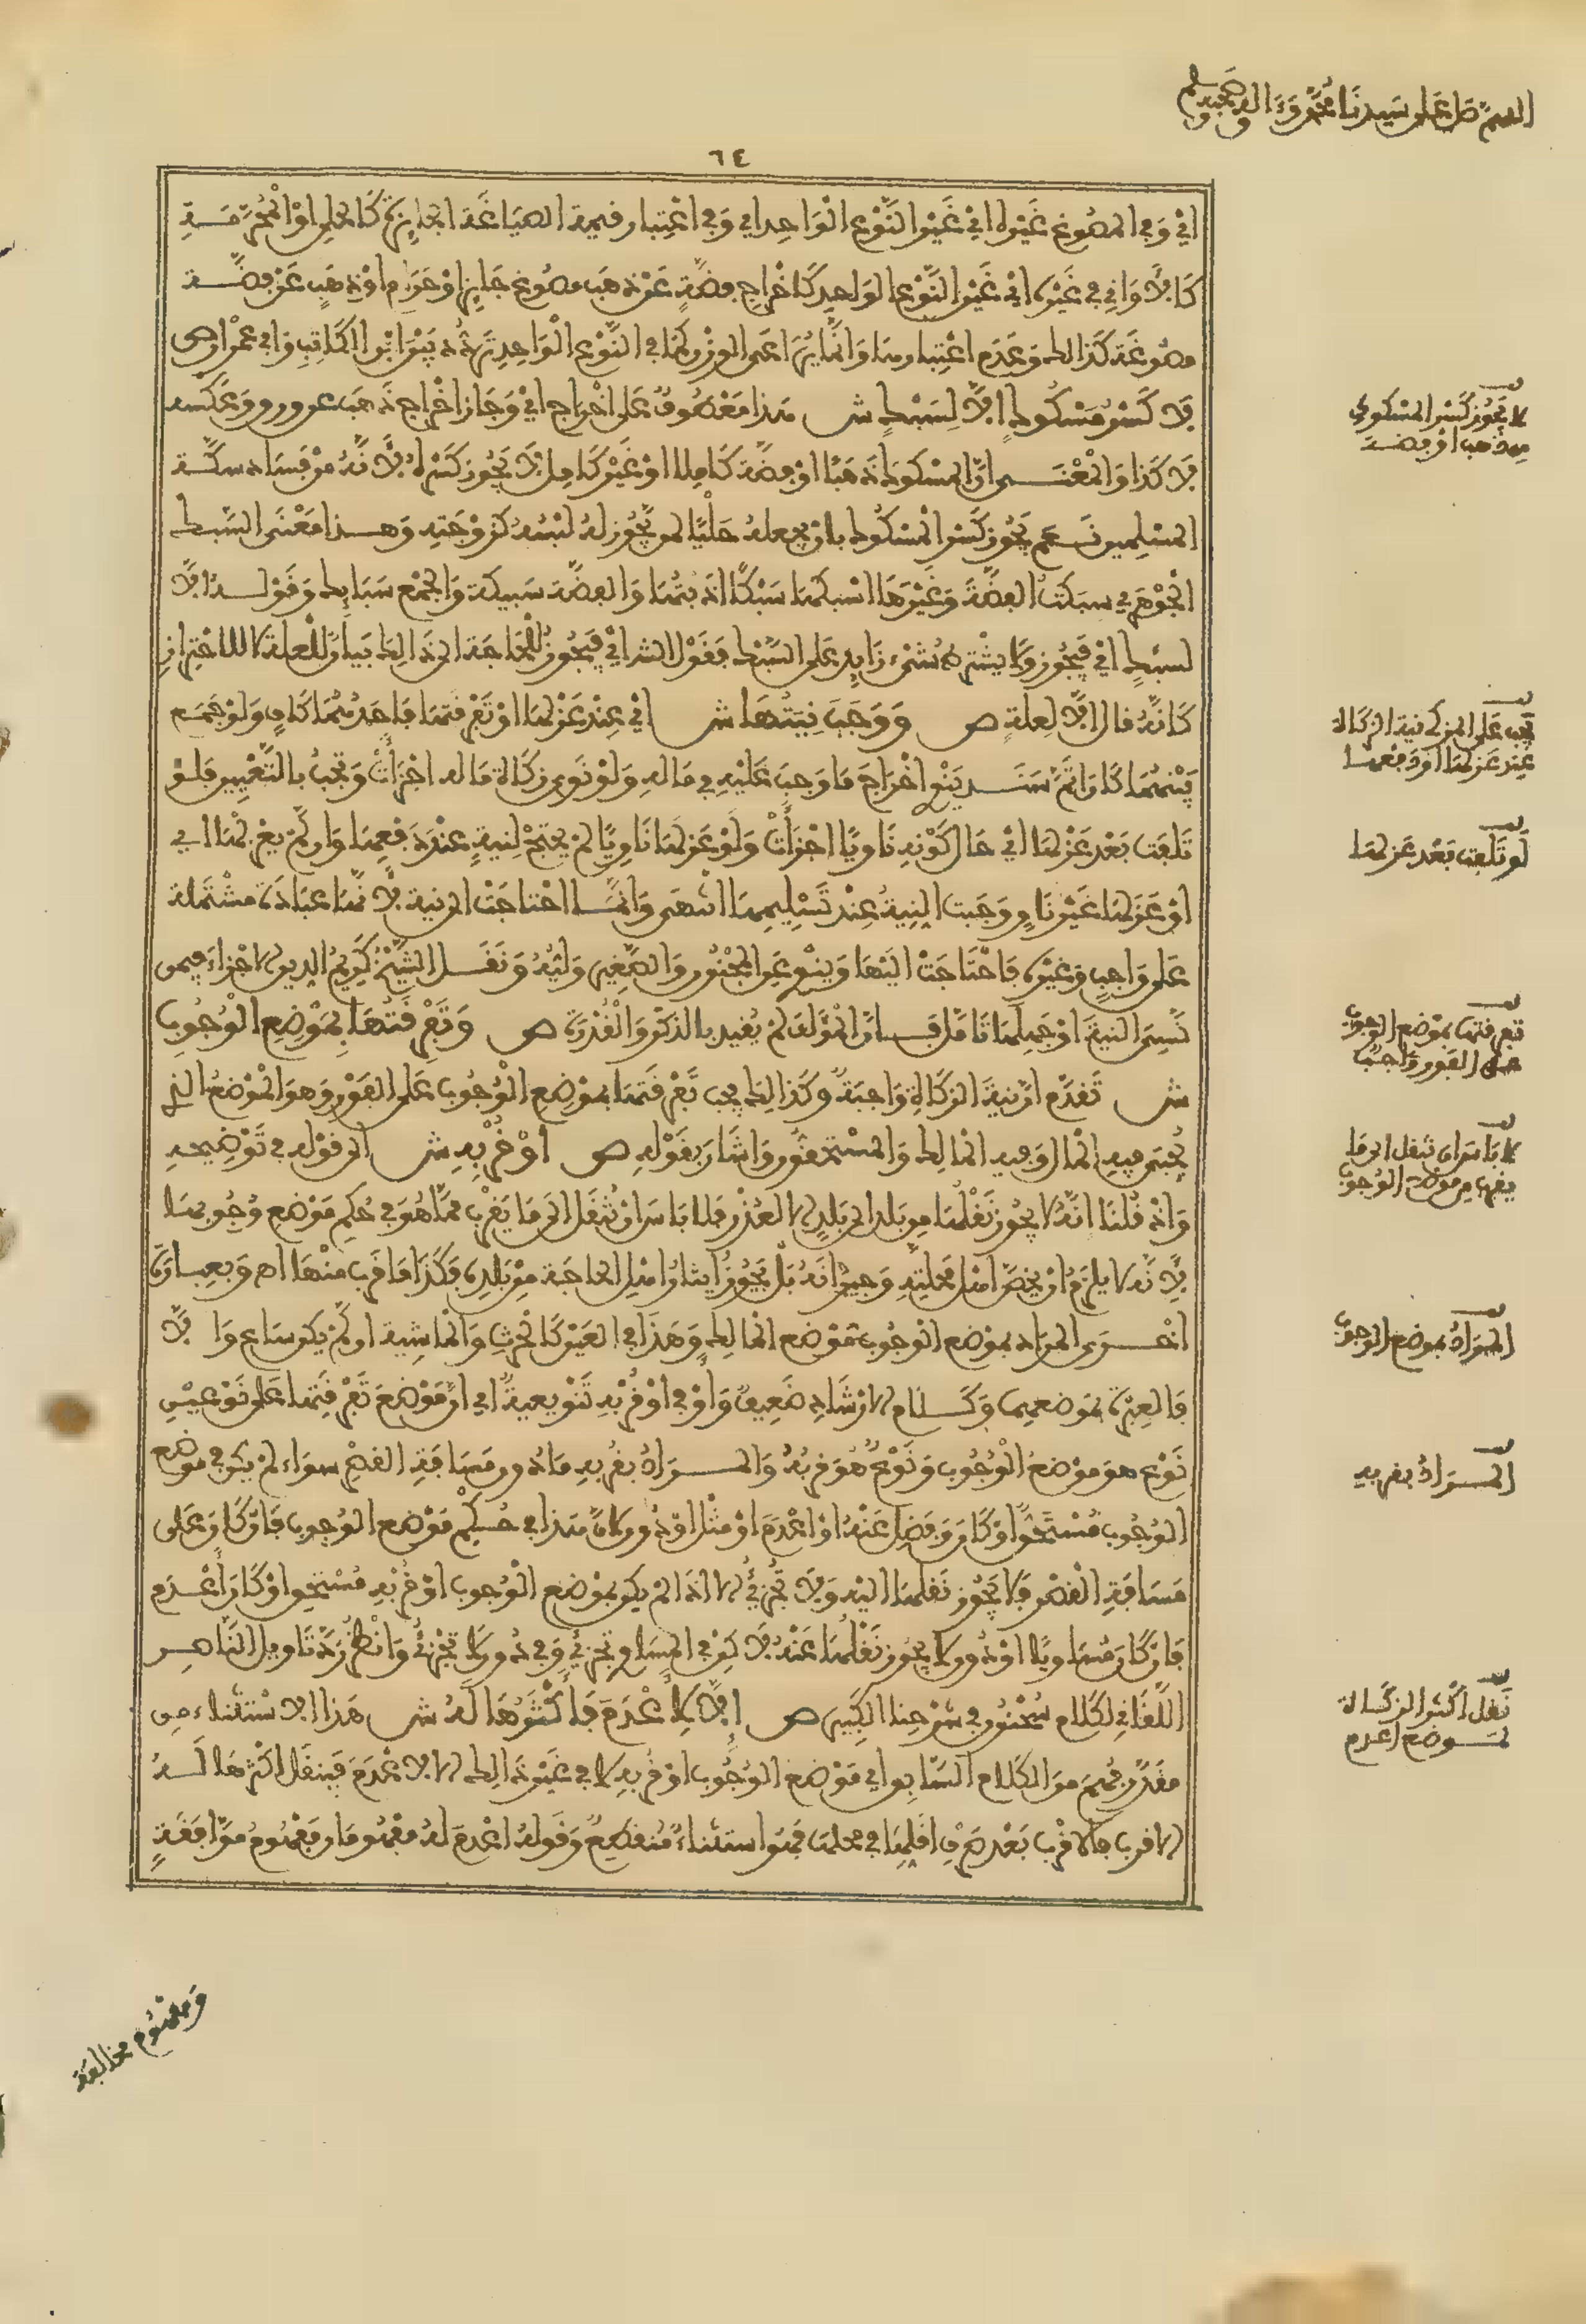 اللهم صل على سيدنا محمد وءاله وصحبه وسلم
٦٤
اي وفي المصوغ غيره اي غير النوع الواحد اي وفي اعتبار قيمة الصياغة الجايزة كالحلي او المحرمة
كالاواني في غيره اي غير النوع الواحد كاخراج فضة عن ذهب مصوغ جايز او حرام او ذهب عن فضة
مصوغة كذالك وعدم اعتبارها وانما يراعى الوزن كما في النوع الواحد تردد بين ابن الكاتب وابي عمران ص
لا كسر مسكوك الا لسبك ش هذا معطوف على اخراج اي وجاز اخراج ذهب عن ورق وعكسه
لا كذا والمعنى ان المسكوك ذهبا او فضة كاملا او غير كامل لا يجوز كسره لانه من فساد سكة
المسلمين نعم يجوز كسر المسكوك بان يجعله حليا لمن يجوز له لبسه كزوجته وهذا معنى السبك
الجوهري سبكت الفضة وغيرها اسبكها سبكا اذبتها والفضة سبيكة والجمع سبايك وقوله الا
لسبك اي فيجوز ولا يشترط شيء زايد على السبك فقول الش اي فيجوز للحاجة الى ذالك بيان للعلة لا للاحتراز
كانه قال الا لعلة ص ووجب نيتها ش اي عند عزلها او تفرقتها فاحدهما كاف ولو جمع
بينهما كان اتم سند ينوي اخراج ما وجب عليه في ماله ولو نوى زكاة ماله اجزات وتجب بالتعيين فلو
تلفت بعد عزلها اي حال كونه ناويا اجزات ولو عزلها ناويا لم يحتج لنية عند دفعها وان لم يعزلها اي
او عزلها غير ناو وجبت النية عند تسليمها انتهى وانما احتاجت الى نية لانها عبادة مشتملة
على واجب وغيره فاحتاجت اليها وينوي عن المجنون والصغير وليه ونقل الشيخ كريم الدين الاجزاء فيمن
نسي النية او جهلها تامل فان المؤلف لم يقيد بالذكر والقدرة ص وتفرقتها بموضع الوجوب
ش تقدم ان نية الزكاة واجبة وكذالك يجب تفرقتها بموضع الوجوب على الفور وهو الموضع الذي
يجبى فيه المال وفيه المالك والمستحقون واشار بقوله ص او قربه ش الى قوله في توضيحه
واذ قلنا انه لا يجوز نقلها من بلد الى بلد الا لعذر فلا باس ان تنقل الى ما يقرب مما هو في حكم موضع وجوبها
لانه لا يلزم ان يخص اهل محلته وجيرانه بل يجوز ايثار اهل الحاجة من بلده فكذا ما قرب منها اه وبعبارة
اخرى المراد بموضع الوجوب موضع المالك وهذا في العين كالحرث والماشية ان لم يكن ساع والا
فالعبرة بموضعهما وكلام الارشاد ضعيف واو في او قربه تنويعية اي ان موضع تفرقتها على نوعين
نوع هو موضع الوجوب ونوع هو قربه والمراد بقربه ما دون مسافة القصر سواء لم يكن في موضع
الوجوب مستحق او كان وفضل عنه او اعدم او مثل او دون لان هذا في حكم موضع الوجوب فان كان على
مسافة القصر فلا يجوز نقلها اليه ولا تجزئ الا اذا لم يكن بموضع الوجوب او قربه مستحق او كان اعدم
فان كان مساويا او دون لا يجوز نقلها عنه لاكن في المساوي تجزئ وفي دون لا تجزئ وانظر رد تاويل الناصر
اللقاني لكلام سحنون في شرحنا الكبير ص الا لاعدم فاكثرها له ش هذا الاستثناء من
مقدر فهم من الكلام السابق اي في موضع الوجوب او قربه لا في غير ذالك الا لاعدم فينقل اكثرها له
الاقرب فالاقرب بعد صرف اقلها في محلها فهو استثناء منقطع وقوله اعدم له مفهومان مفهوم موافقة
ومفهوم مخالفة
لا يجوز كسر المسكوك
من ذهب او فضة
تجب على المزكي نية الزكاة
عند عزلها او دفعها
لو تلفت بعد عزلها
تفرقتها بموضع الوجوب
على الفور واجب
لا باس ان تنقل الى ما
يقرب من موضع الوجوب
المراد بموضع الوجوب
المراد بقربه
نقل اكثر الزكاة
لموضع اعدم